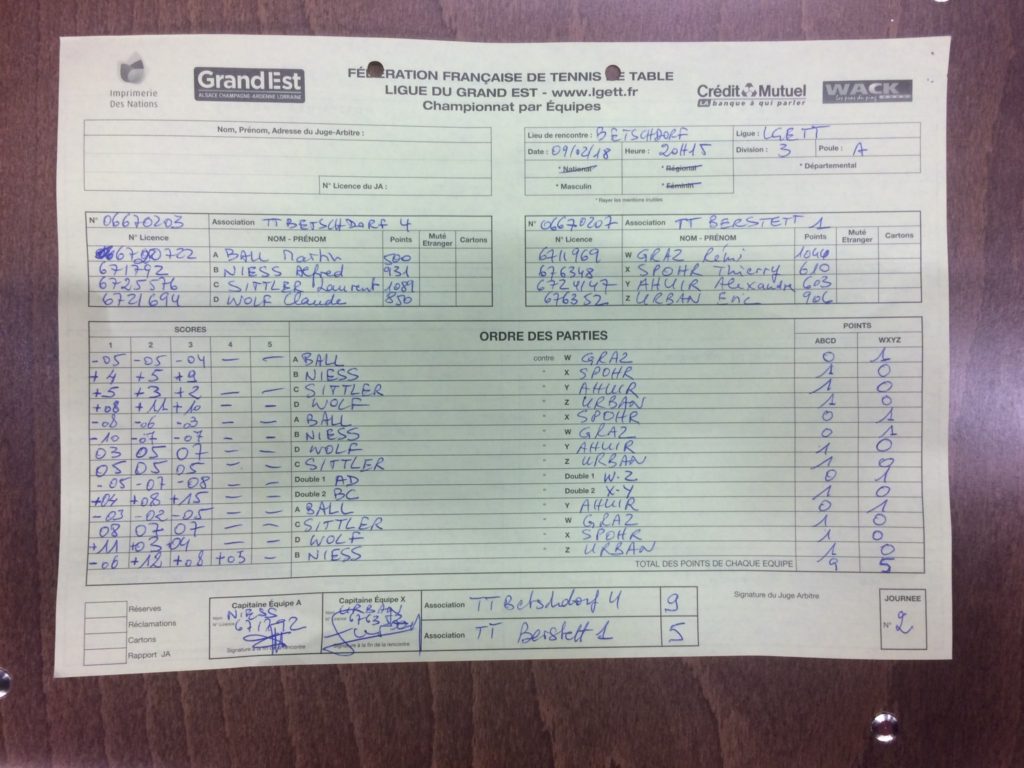 Imprimerie Des Nations
GrandEst
ALSACE CHAMPAGNE-ARDENNE LORRAINE
FÉDÉRATION FRANÇAISE DE TENNIS DE TABLE
LIGUE DU GRAND EST - www.lgett.fr
Championnat par Équipes
Crédit Mutuel
LA banque à qui parler
WACK
Nom, Prénom, Adresse du Juge-Arbitre :
N° Licence du JA :
Lieu de rencontre : BETSCHDORF Ligue : LGETT
Date : 09/02/18 Heure : 20H15 Division : 3 Poule : A
* National * Régional * Départemental
* Masculin * Féminin
* Rayer les mentions inutiles
N° 06670203 Association TT BETSCHDORF 4
N° Licence NOM - PRÉNOM Points Muté Etranger Cartons
A BALL Martin 500
671792 B NIESS Alfred 931
6725576 C SITTLER Laurent 1089
6721694 D WOLF Claude 850
N° 06670207 Association TT BERSTETT 1
N° Licence NOM - PRÉNOM Points Muté Etranger Cartons
6711968 W GRAZ Rémi 1044
676348 X SPOHR Thierry 610
6724147 Y AHUIR Alexandre 603
676352 Z URBAN Eric 906
SCORES ORDRE DES PARTIES POINTS
1 2 3 4 5 ABCD WXYZ
-05 -05 -04 — — A BALL contre W GRAZ 0 1
+4 +5 +9 B NIESS " X SPOHR 1 0
+5 +3 +2 — — C SITTLER " Y AHUIR 1 0
+08 +11 +10 — — D WOLF " Z URBAN 1 0
-08 -06 -03 — — A BALL " X SPOHR 0 1
-10 -07 -07 — — B NIESS " W GRAZ 0 1
03 05 07 — — D WOLF " Y AHUIR 1 0
05 05 05 — — C SITTLER " Z URBAN 1 0
-05 -07 -08 — — Double 1 AD " Double 1 W-Z 0 1
+04 +08 +15 — — Double 2 BC " Double 2 X-Y 1 0
-03 -02 -05 — — A BALL " Y AHUIR 0 1
08 07 07 — — C SITTLER " W GRAZ 1 0
+11 +03 +04 — — D WOLF " X SPOHR 1 0
-06 +12 +08 +03 — B NIESS " Z URBAN 1 0
TOTAL DES POINTS DE CHAQUE EQUIPE 9 5
Réserves
Réclamations
Cartons
Rapport JA
Capitaine Équipe A
Nom NIESS
N° Licence 671792
Signature à la fin de la rencontre
Capitaine Équipe X
Nom URBAN
N° Licence
Signature à la fin de la rencontre
Association TT Betschdorf 4 9
Association TT Berstett 1 5
Signature du Juge Arbitre
JOURNEE
N° 2